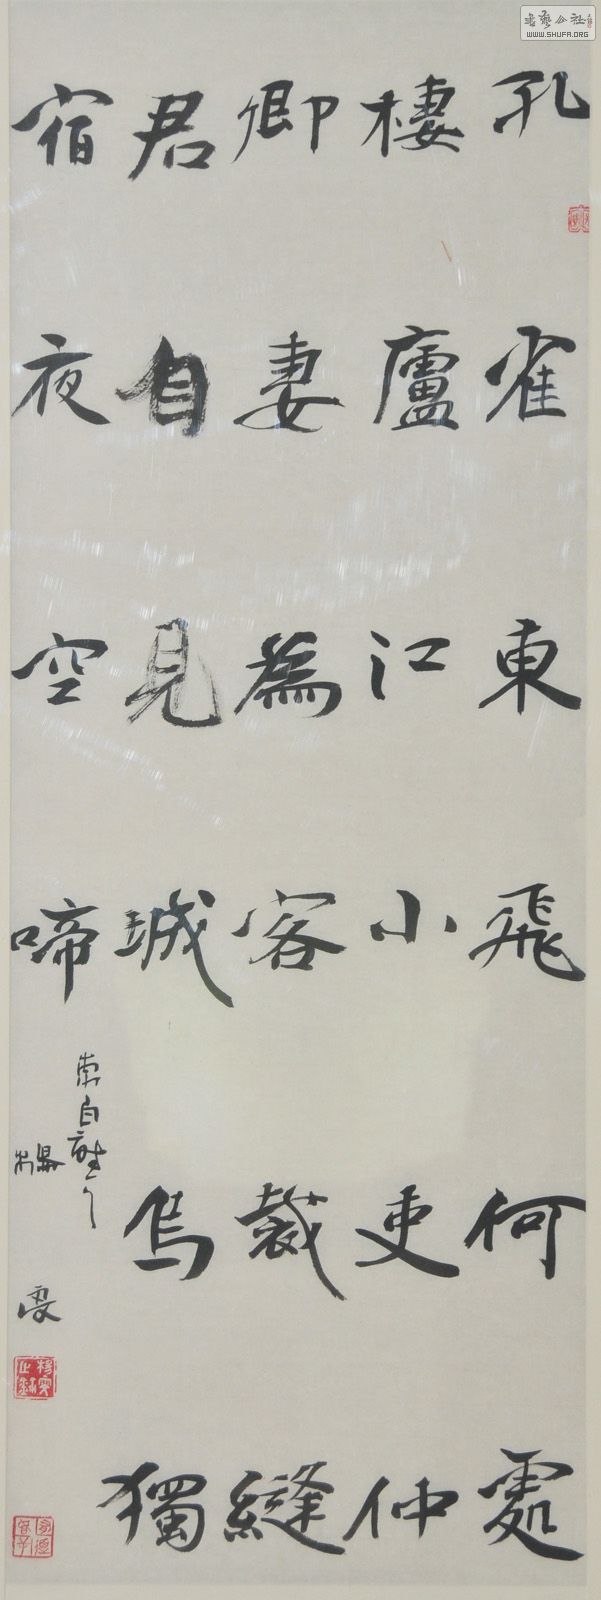 孔雀東飛何處
棲廬江小吏仲
卿妻為客裁縫
君自見城烏獨
宿夜空啼
書藝公社
WWW.SHUFA.ORG